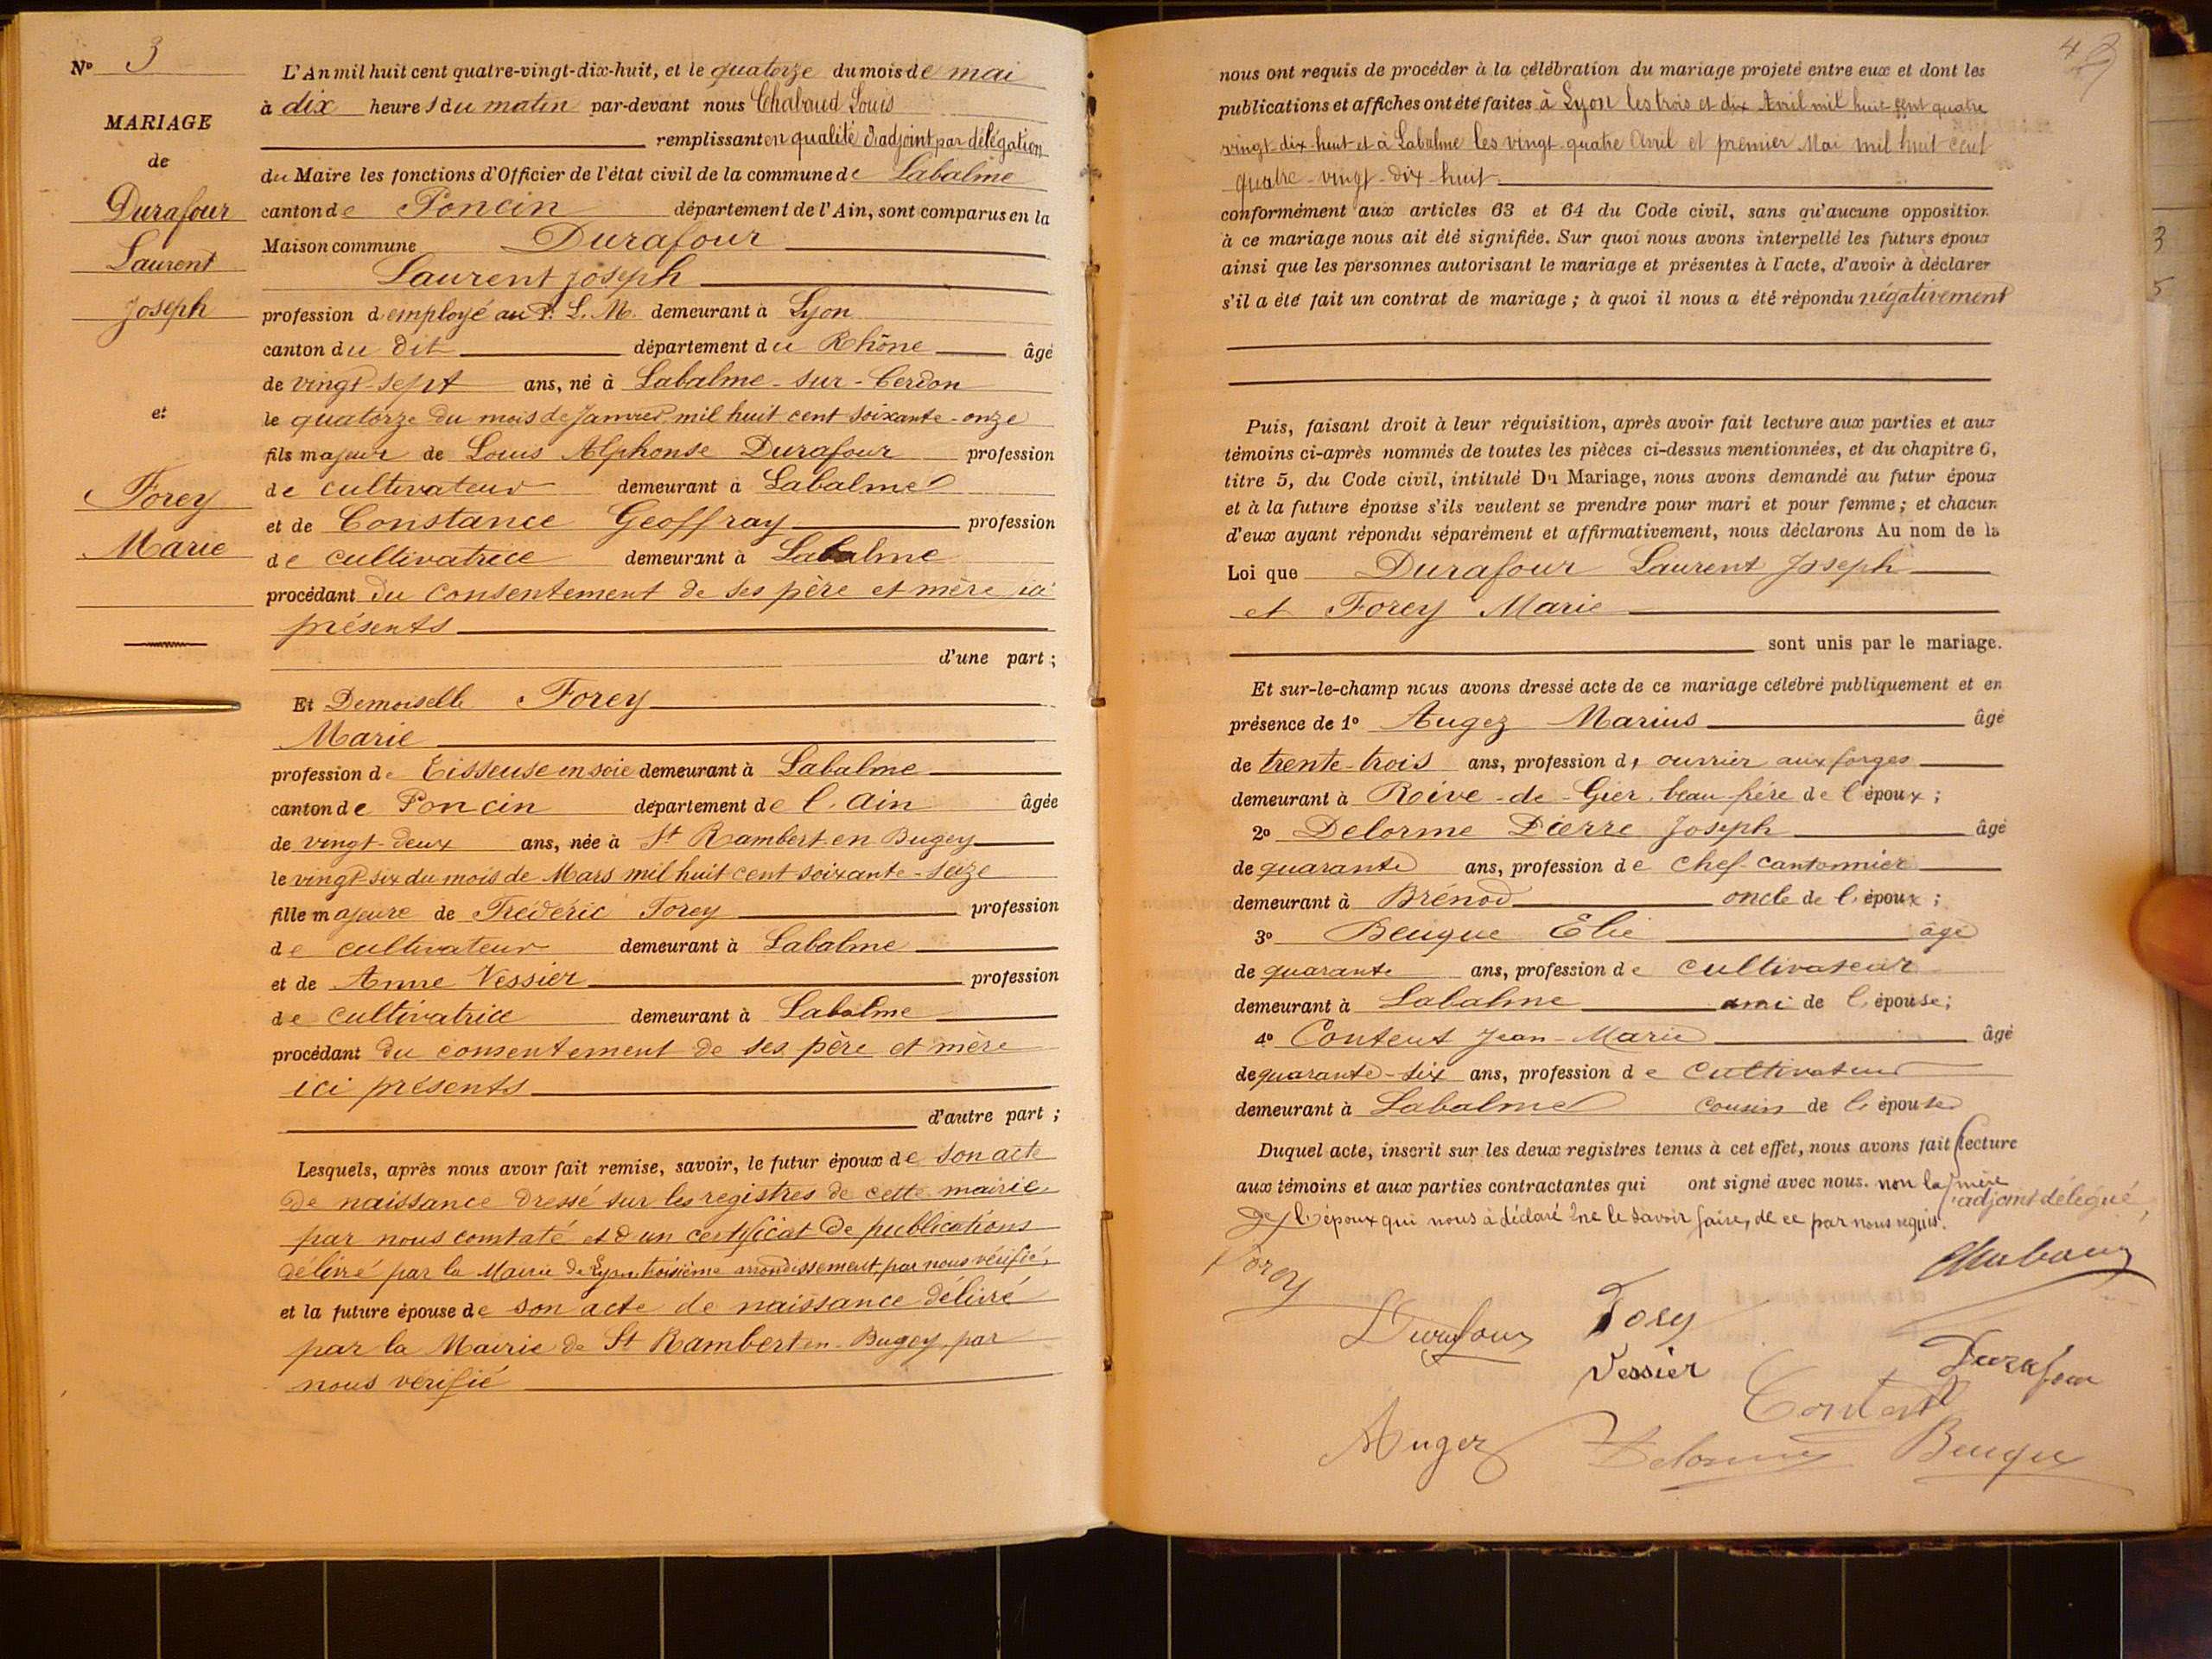 Nº 3
MARIAGE
de
Durafour
Laurent
Joseph
et
Forey
Marie
L'An mil huit cent quatre-vingt-dix-huit, et le quatorze du mois de mai
à dix heures du matin par-devant nous Chabaud Louis
remplissant en qualité d'adjoint par délégation
du Maire les fonctions d'Officier de l'état civil de la commune de Labalme
canton de Poncin département de l'Ain, sont comparus en la
Maison commune Durafour
Laurent Joseph
profession d'employé au P. L. M. demeurant à Lyon
canton du dit département du Rhône âgé
de vingt-sept ans, né à Labalme-sur-Cerdon
le quatorze du mois de Janvier mil huit cent soixante-onze
fils majeur de Louis Alphonse Durafour profession
de cultivateur demeurant à Labalme
et de Constance Geoffray profession
de cultivatrice demeurant à Labalme
procédant du consentement de ses père et mère ici
présents
d'une part ;
Et Demoiselle Forey
Marie
profession de Tisseuse en soie demeurant à Labalme
canton de Poncin département de l'Ain âgée
de vingt-deux ans, née à St Rambert-en-Bugey
le vingt-six du mois de Mars mil huit cent soixante-seize
fille majeure de Frédéric Forey profession
de cultivateur demeurant à Labalme
et de Anne Vessier profession
de cultivatrice demeurant à Labalme
procédant du consentement de ses père et mère
ici présents
d'autre part ;
Lesquels, après nous avoir fait remise, savoir, le futur époux de son acte
de naissance dressé sur les registres de cette mairie
par nous constaté et d'un certificat de publications
délivré par la Mairie de Lyon troisième arrondissement, par nous vérifié,
et la future épouse de son acte de naissance délivré
par la Mairie de St Rambert-en-Bugey, par
nous vérifié
nous ont requis de procéder à la célébration du mariage projeté entre eux et dont les
publications et affiches ont été faites à Lyon les trois et dix Avril mil huit cent quatre
vingt-dix-huit et à Labalme les vingt-quatre Avril et premier Mai mil huit cent
quatre-vingt-dix-huit
conformément aux articles 63 et 64 du Code civil, sans qu'aucune opposition
à ce mariage nous ait été signifiée. Sur quoi nous avons interpellé les futurs époux
ainsi que les personnes autorisant le mariage et présentes à l'acte, d'avoir à déclarer
s'il a été fait un contrat de mariage ; à quoi il nous a été répondu négativement
Puis, faisant droit à leur réquisition, après avoir fait lecture aux parties et aux
témoins ci-après nommés de toutes les pièces ci-dessus mentionnées, et du chapitre 6,
titre 5, du Code civil, intitulé Du Mariage, nous avons demandé au futur époux
et à la future épouse s'ils veulent se prendre pour mari et pour femme ; et chacun
d'eux ayant répondu séparément et affirmativement, nous déclarons Au nom de la
Loi que Durafour Laurent Joseph
et Forey Marie
sont unis par le mariage.
Et sur-le-champ nous avons dressé acte de ce mariage célébré publiquement et en
présence de 1º Augez Marius âgé
de trente-trois ans, profession d'ouvrier aux forges
demeurant à Roive-de-Gier, beau-frère de l'époux ;
2º Delorme Pierre Joseph âgé
de quarante ans, profession de chef-cantonnier
demeurant à Brénod oncle de l'époux ;
3º Beuque Elie âgé
de quarante ans, profession de cultivateur
demeurant à Labalme ami de l'épouse ;
4º Content Jean-Marie âgé
de quarante-six ans, profession de cultivateur
demeurant à Labalme cousin de l'épouse
Duquel acte, inscrit sur les deux registres tenus à cet effet, nous avons fait lecture
aux témoins et aux parties contractantes qui ont signé avec nous. non la mère
de l'époux qui nous à déclaré ne le savoir faire, de ce par nous requis. adjoint délégué,
Forey
Chabaud
Durafour
Forey
Vessier
Durafour
Content
Augez
Delorme
Beuque
3
5